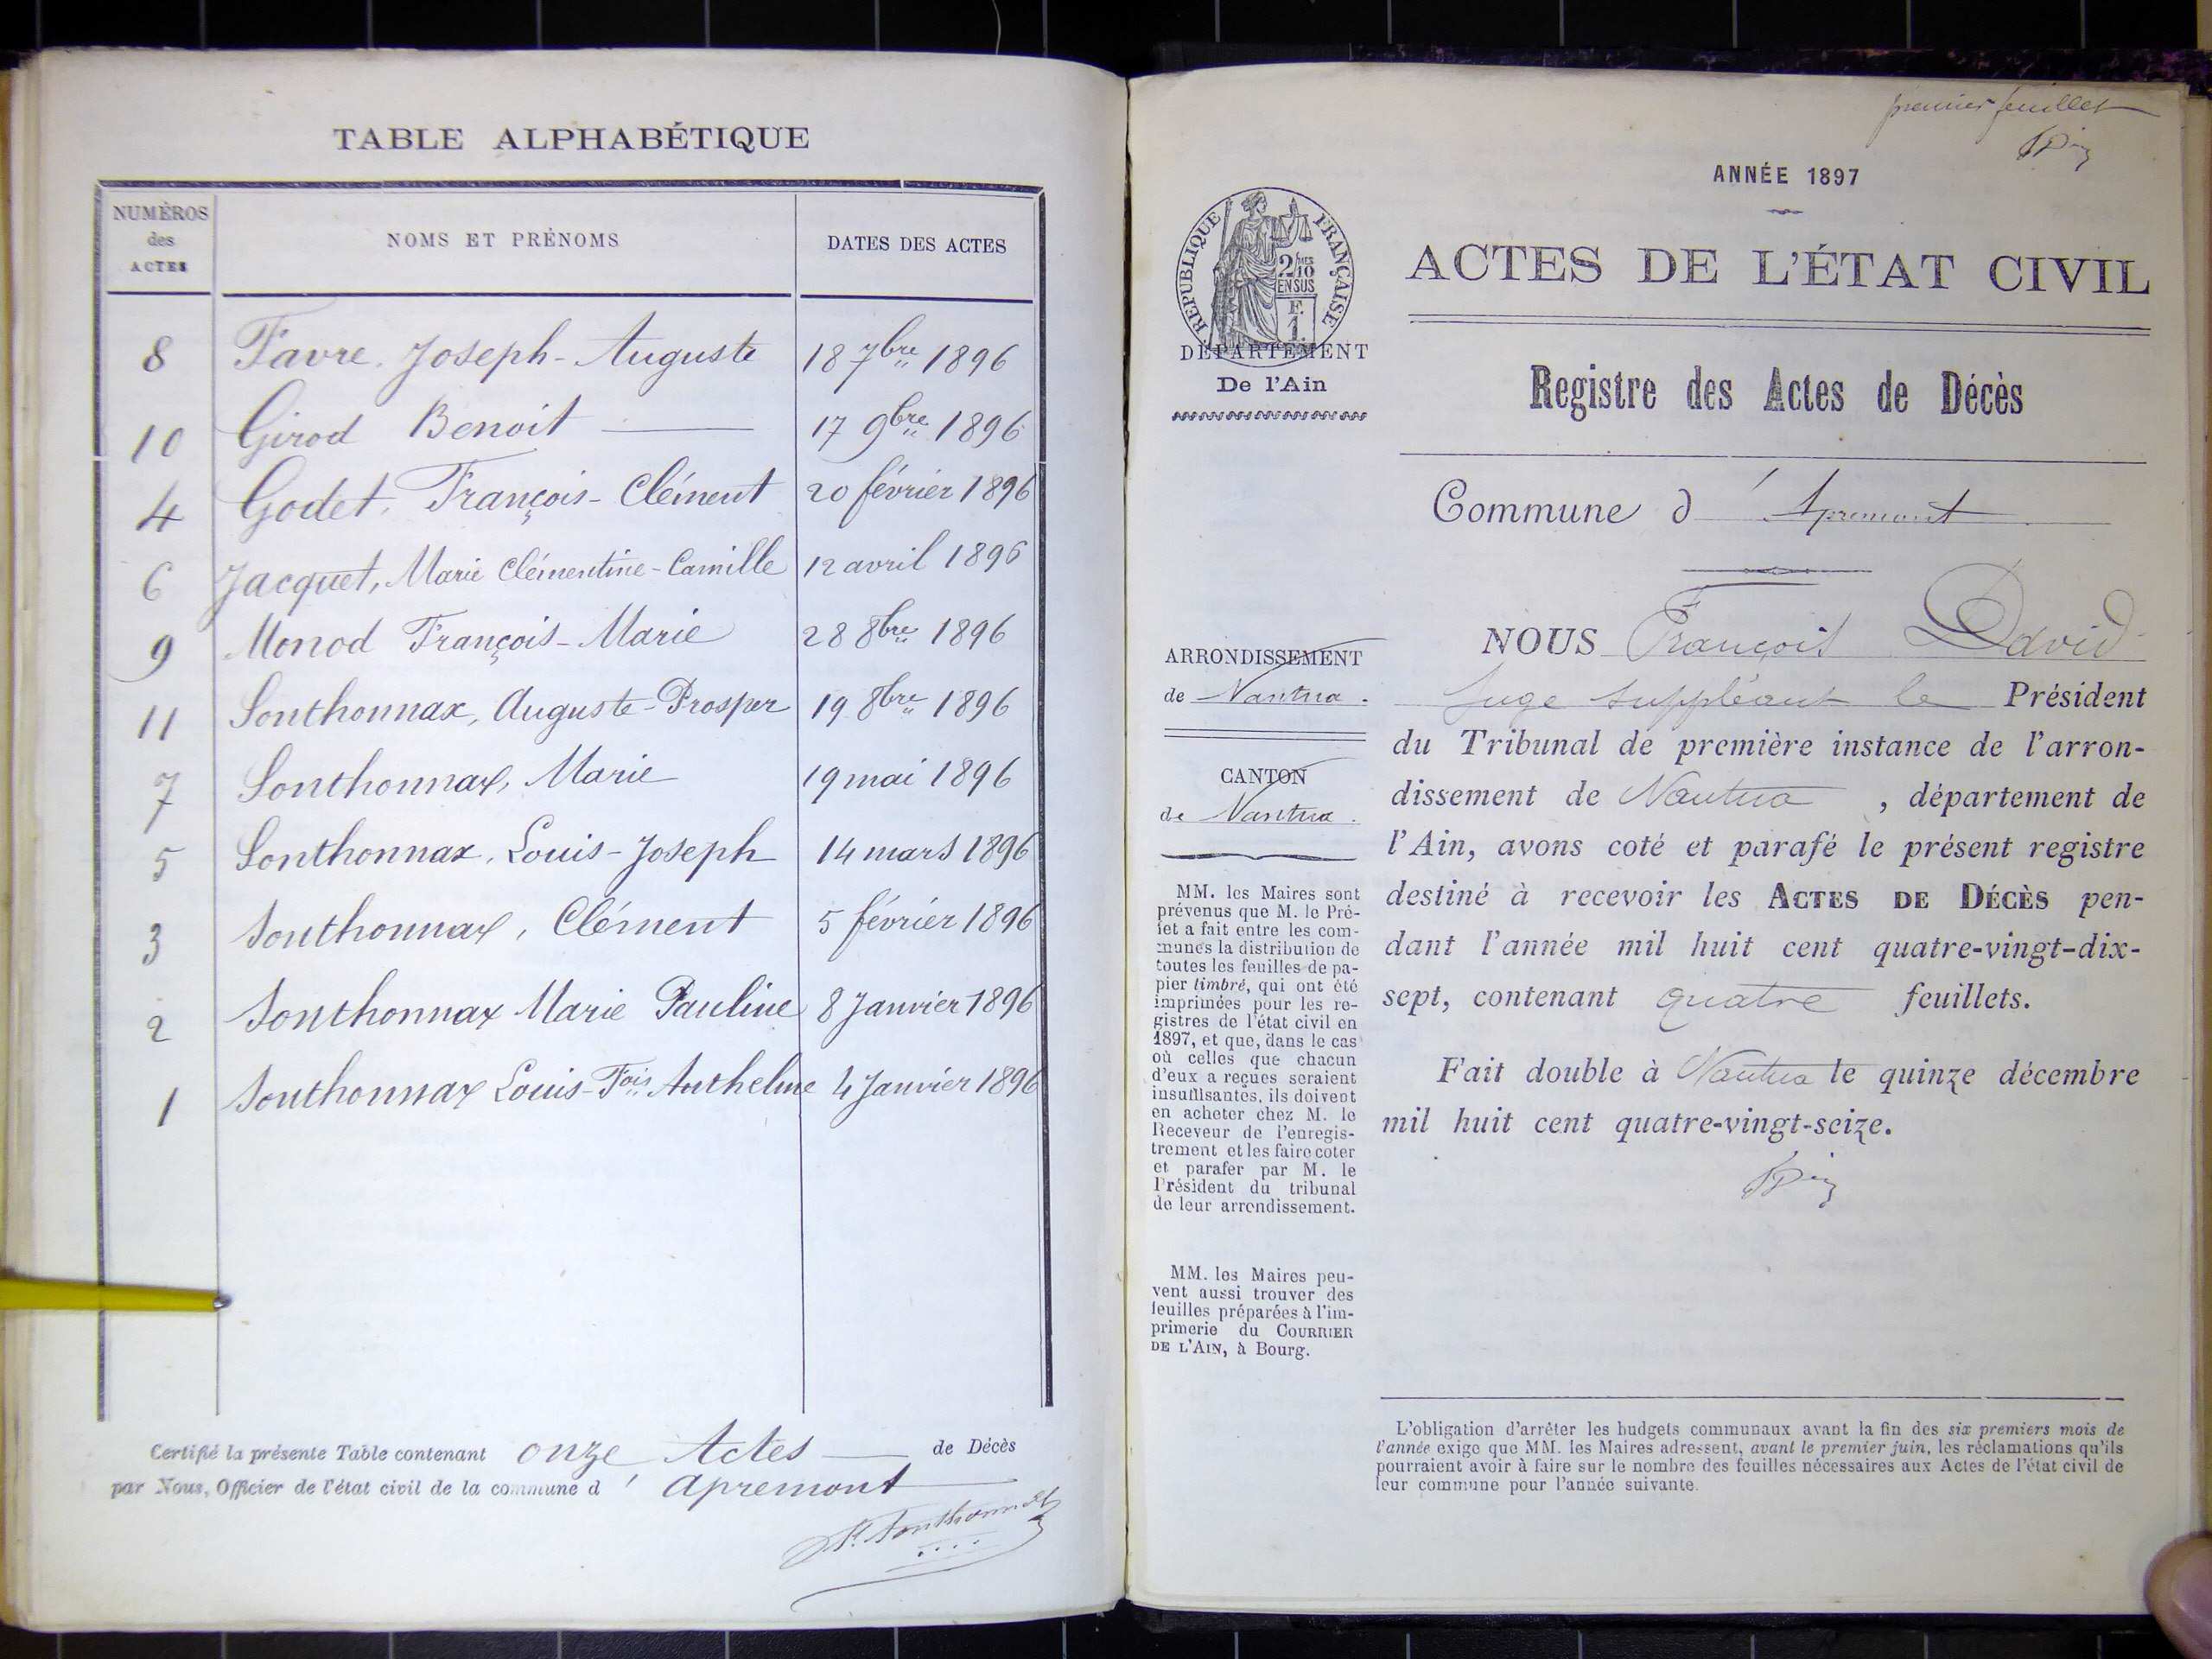 TABLE ALPHABÉTIQUE
NUMÉROS des ACTES
NOMS ET PRÉNOMS
DATES DES ACTES
8 Favre. Joseph-Auguste 18 7bre 1896
10 Girod Benoit 17 9bre 1896
4 Godet, François-Clément 20 février 1896
6 Jacquet, Marie Clémentine-Camille 12 avril 1896
9 Monod François-Marie 28 8bre 1896
11 Sonthonnax, Auguste-Prosper 19 8bre 1896
7 Sonthonnax, Marie 19 mai 1896
5 Sonthonnax, Louis-Joseph 14 mars 1896
3 Sonthonnax, Clément 5 février 1896
2 Sonthonnax Marie Pauline 8 Janvier 1896
1 Sonthonnax Louis-Fois Anthelme 4 Janvier 1896
Certifié la présente Table contenant onze Actes de Décès
par Nous, Officier de l'état civil de la commune d' Apremont
premier feuillet
ANNÉE 1897
RÉPUBLIQUE FRANÇAISE
2/10 EN SUS
F. 1.
DÉPARTEMENT
De l'Ain
ACTES DE L'ÉTAT CIVIL
Registre des Actes de Décès
Commune d'Apremont
ARRONDISSEMENT
de Nantua.
CANTON
de Nantua.
MM. les Maires sont
prévenus que M. le Pré-
fet a fait entre les com-
munes la distribution de
toutes les feuilles de pa-
pier timbré, qui ont été
imprimées pour les re-
gistres de l'état civil en
1897, et que, dans le cas
où celles que chacun
d'eux a reçues seraient
insuffisantes, ils doivent
en acheter chez M. le
Receveur de l'enregis-
trement et les faire coter
et parafer par M. le
Président du tribunal
de leur arrondissement.
MM. les Maires peu-
vent aussi trouver des
feuilles préparées à l'im-
primerie du COURRIER
DE L'AIN, à Bourg.
NOUS François David
Juge suppléant le Président
du Tribunal de première instance de l'arron-
dissement de Nantua, département de
l'Ain, avons coté et parafé le présent registre
destiné à recevoir les ACTES DE DÉCÈS pen-
dant l'année mil huit cent quatre-vingt-dix-
sept, contenant quatre feuillets.
Fait double à Nantua le quinze décembre
mil huit cent quatre-vingt-seize.
L'obligation d'arrêter les budgets communaux avant la fin des six premiers mois de
l'année exige que MM. les Maires adressent, avant le premier juin, les réclamations qu'ils
pourraient avoir à faire sur le nombre des feuilles nécessaires aux Actes de l'état civil de
leur commune pour l'année suivante.